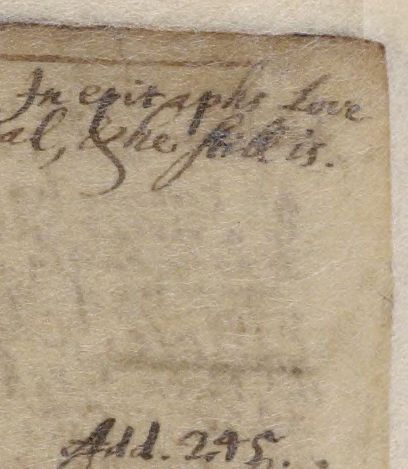 In epitaphs Love
al, & he still is.
Add. 245.